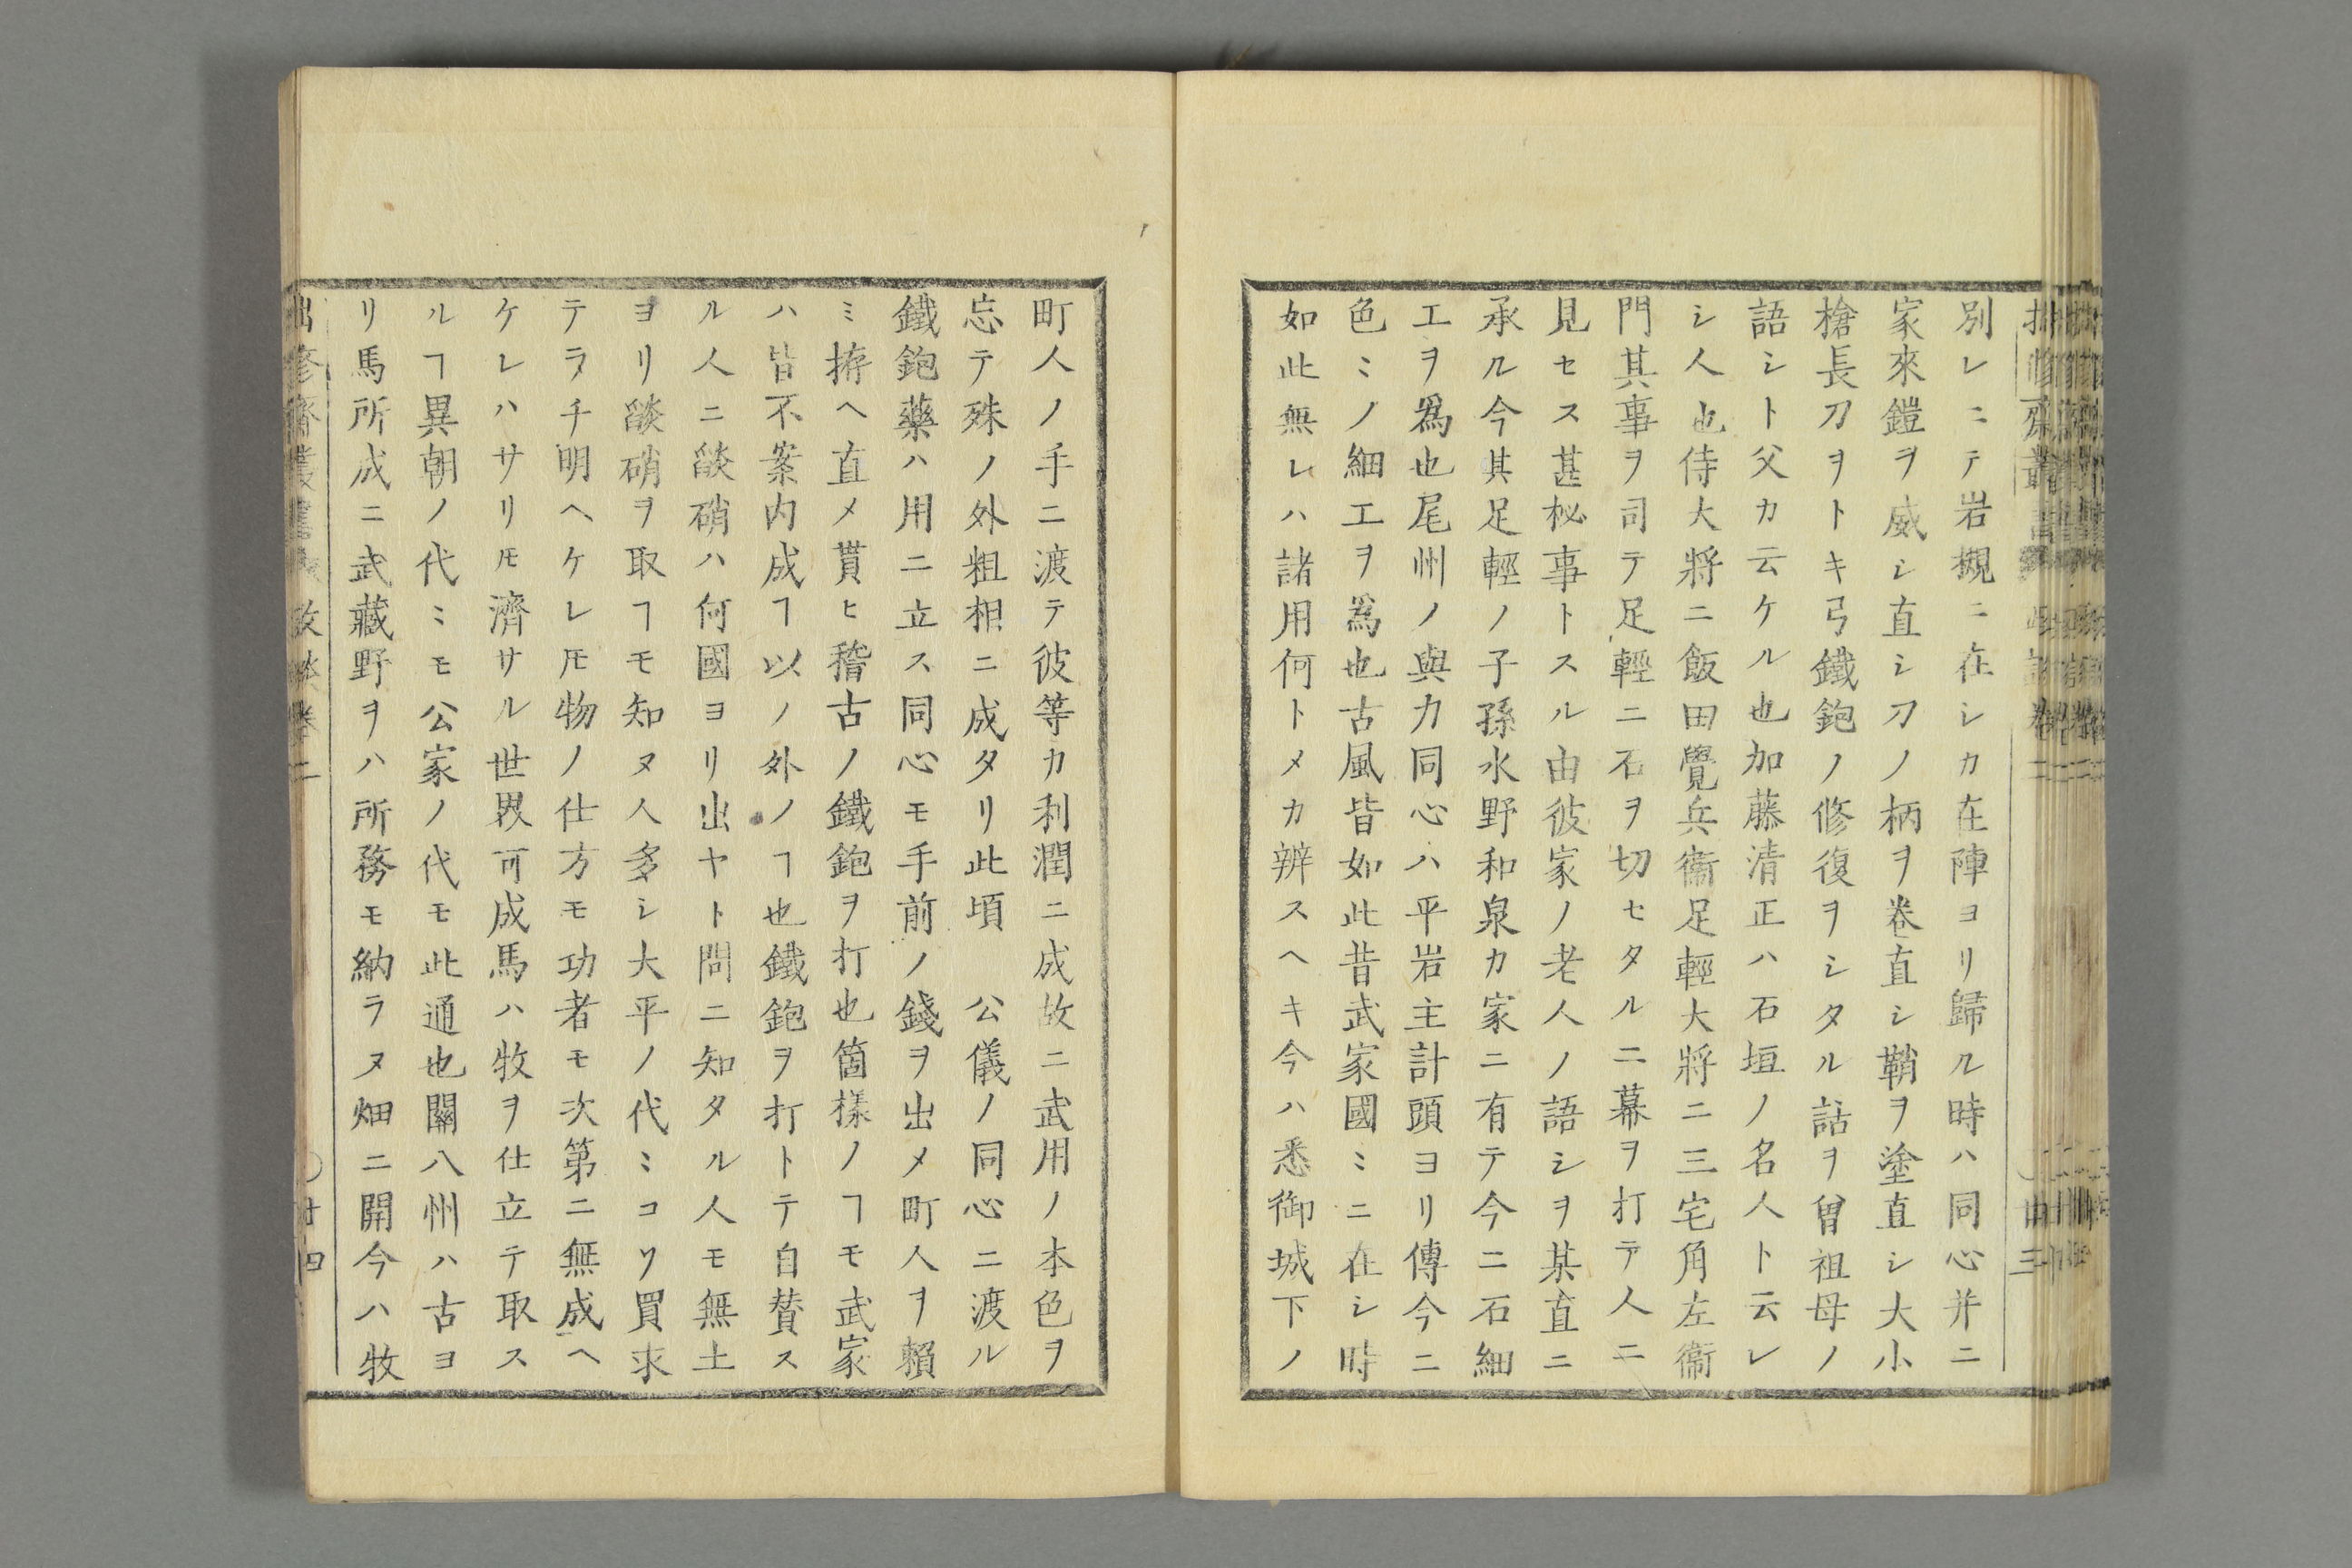 別レニテ岩槻ニ在シカ在陣ヨリ歸ル時ハ同心并ニ
家來鎧ヲ威シ直シ刀ノ柄ヲ卷直シ鞘ヲ塗直シ大小
槍長刀ヲトキ弓鐵鉋ノ修復ヲシタル話ヲ曾祖母ノ
語シト父カ云ケル也加藤清正ハ石垣ノ名人ト云レ
シ人也侍大將ニ飯田覺兵衞足輕大將ニ三宅角左衞
門其事ヲ司テ足輕ニ石ヲ切セタルニ幕ヲ打テ人ニ
見セス甚秘事トスル由彼家ノ老人ノ語シヲ某直ニ
承ル今其足輕ノ子孫水野和泉カ家ニ有テ今ニ石細
工ヲ爲也尾州ノ與力同心ハ平岩主計頭ヨリ傳今ニ
色ミノ細工ヲ爲也古風皆如此昔武家國ミニ在シ時
如此無レハ諸用何トメカ辨スヘキ今ハ悉御城下ノ
町人ノ手ニ渡テ彼等カ利潤ニ成故ニ武用ノ本色ヲ
忘テ殊ノ外粗相ニ成タリ此頃 公儀ノ同心ニ渡ル
鐵鉋藥ハ用ニ立ス同心モ手前ノ錢ヲ出メ町人ヲ賴
ミ拵ヘ直メ貰ヒ稽古ノ鐵鉋ヲ打也箇樣ノヿモ武家
ハ皆不案内成ヿ以ノ外ノヿ也鐵鉋ヲ打トテ自賛ス
ル人ニ焔硝ハ何國ヨリ出ヤト問ニ知タル人モ無土
ヨリ焔硝ヲ取ヿモ知ヌ人多シ大平ノ代ミコソ買求
テラチ明ヘケレ𪜈物ノ仕方モ功者モ次第ニ無成ヘ
ケレハサリ𪜈濟サル世界可成馬ハ牧ヲ仕立テ取ス
ルヿ異朝ノ代ミモ公家ノ代モ此通也關八州ハ古ヨ
リ馬所成ニ武藏野ヲハ所務モ納ラヌ畑ニ開今ハ牧